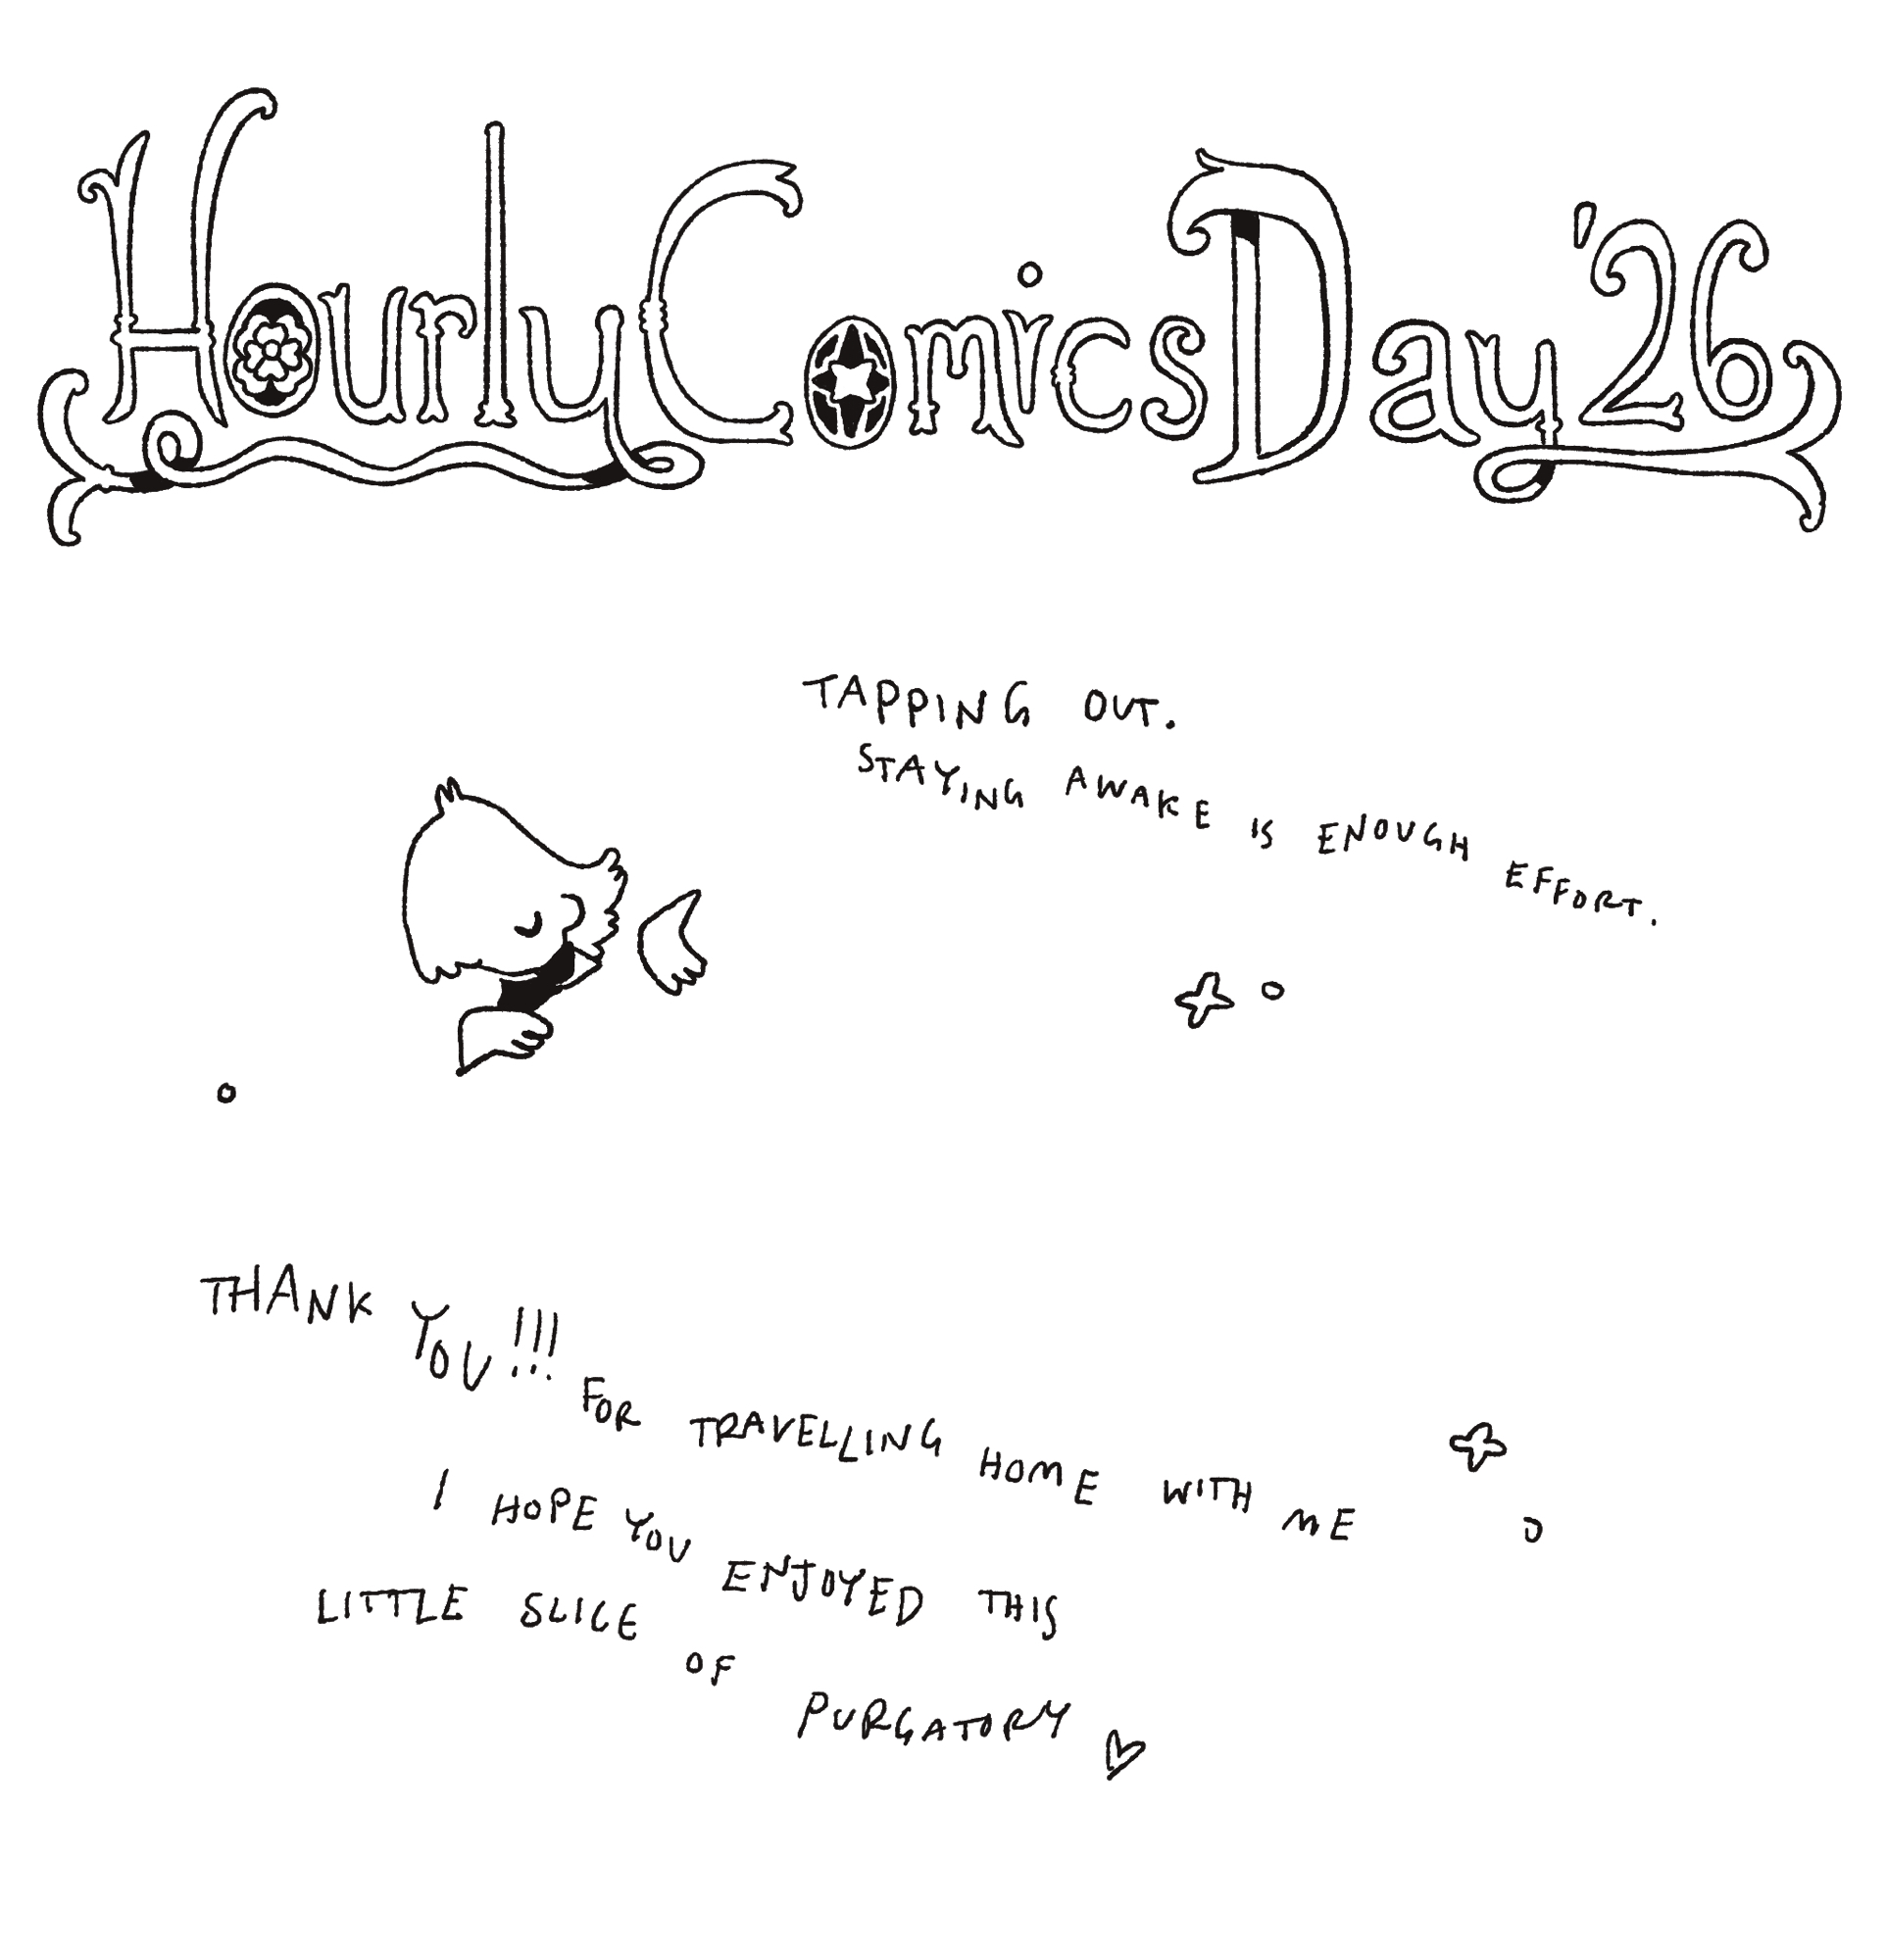 Hourly Comics Day '26
TAPPING OUT.
STAYING AWAKE IS ENOUGH EFFORT.
THANK YOU!!! FOR TRAVELLING HOME WITH ME
I HOPE YOU ENJOYED THIS
LITTLE SLICE OF PURGATORY